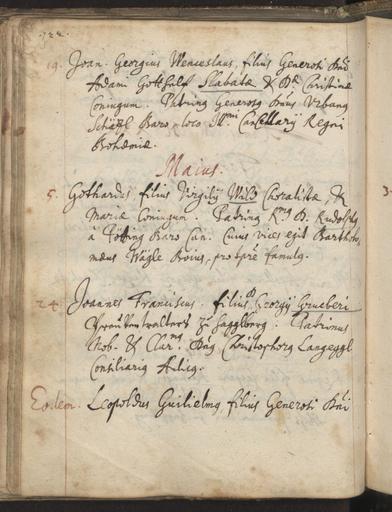 122.
19. Joan. Georgius Wenceslaus, filius Generosi Dni
Adami Gotthelf Slabatæ & Dæ Christinæ
Coniugum. Patrinus Generosus Dnus Urbanus
Baro loco Ill.mi Cancellarij Regni
Bohemiæ.
Maius.
5. Gothardus filius Virgilij Choralistæ, &
Mariæ Coniugum. Patrinus R.mus D. Rudolphus
à Baro Can. Cuius vices egit Bartholo,
mæus Wägle Boius, famulus.
24. Joannes Franciscus. filius D. Georgij Grueberi
zu Patrinus
Nob. & Clar. Dnus Christophorus Langeggl
Consiliarius Aulicus.
Eodem. Leopoldus Guilielmus filius Generosi Dni
3